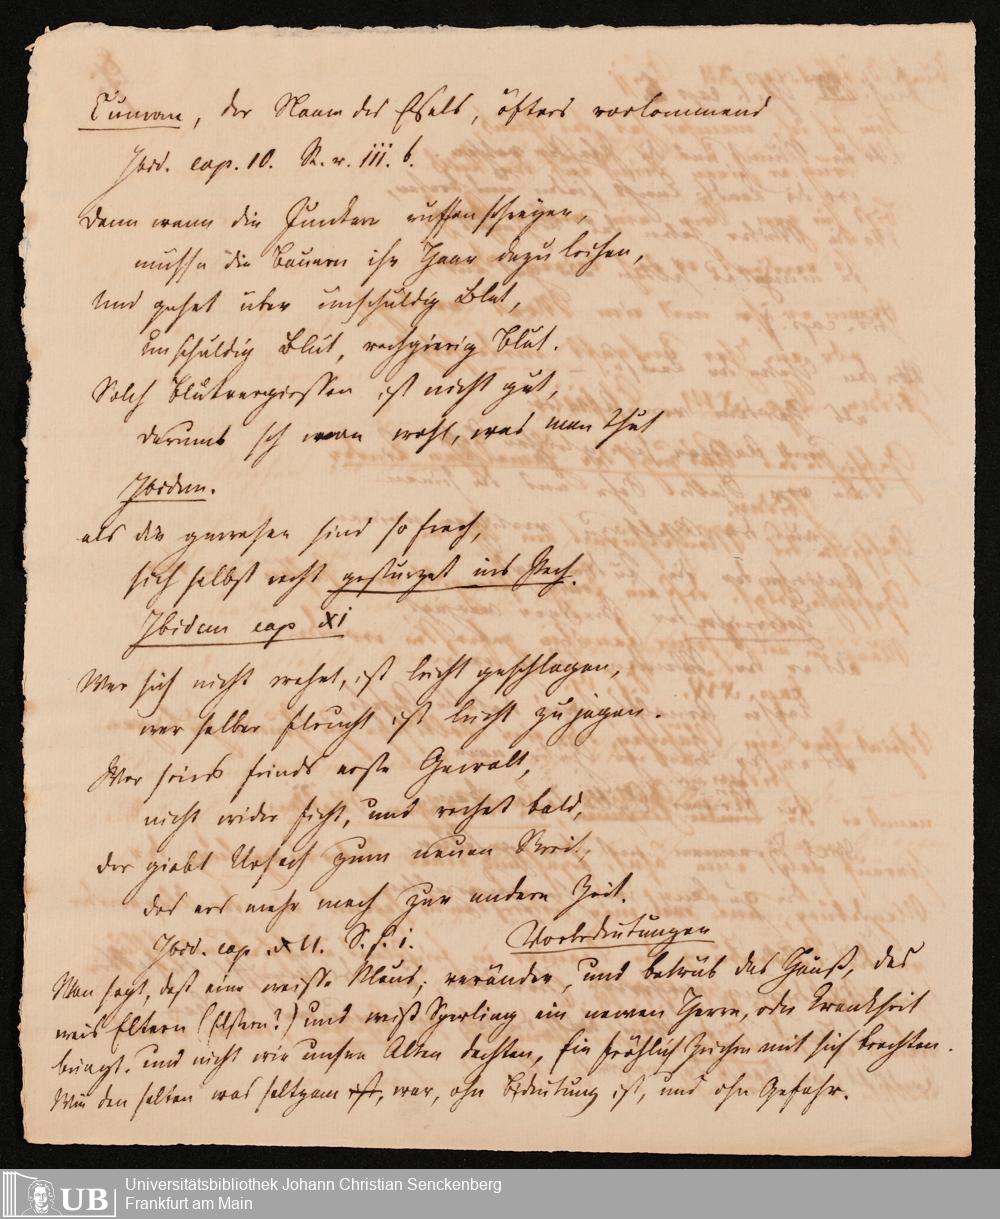 Cuman, der Naam des Esels, öfters vorkommend
Ibid. cap. 10. R. r. iii. b.
Denn wann die Junkern ruffen schreyen,
müsse die Bauern ihr Haar dazu leihen,
Und gehet über unschuldig Blut,
unschuldig Blut, rachgierig Blut.
Solch Blutvergiessen ist nicht gut,
darumb seh man wohl, was man thut
Ibidem.
als die gewesen sind so frech,
sich selbst recht gesturzet ins Pech.
Ibidem cap xi
Wer sich nicht wehrt, ist leicht geschlagen,
wer selber fleucht ist leicht zu jagen.
Wer seins feinds erste Gewalt,
nicht wider ficht, und rechet bald,
der giebt Ursach zum neuen Streit,
das ers mehr mach zur andern Zeit.
Ibid. cap. xii. S. f. i. Vorbedeutungen
Man sagt, daß eine weisse Maus, verändre, und betrüb das Hauß, das
weis Elstern (Elstern?) und weiß Sperling ein newen Herrn, oder Krankheit
bringt. und nicht wie unsere Alten dachten, Ein fröhlich Zeichen mit sich brachten.
Wie denn selten was seltzam ist, war, ohn Bedeutung ist, und ohn Gefahr.
Universitätsbibliothek Johann Christian Senckenberg
Frankfurt am Main
UB